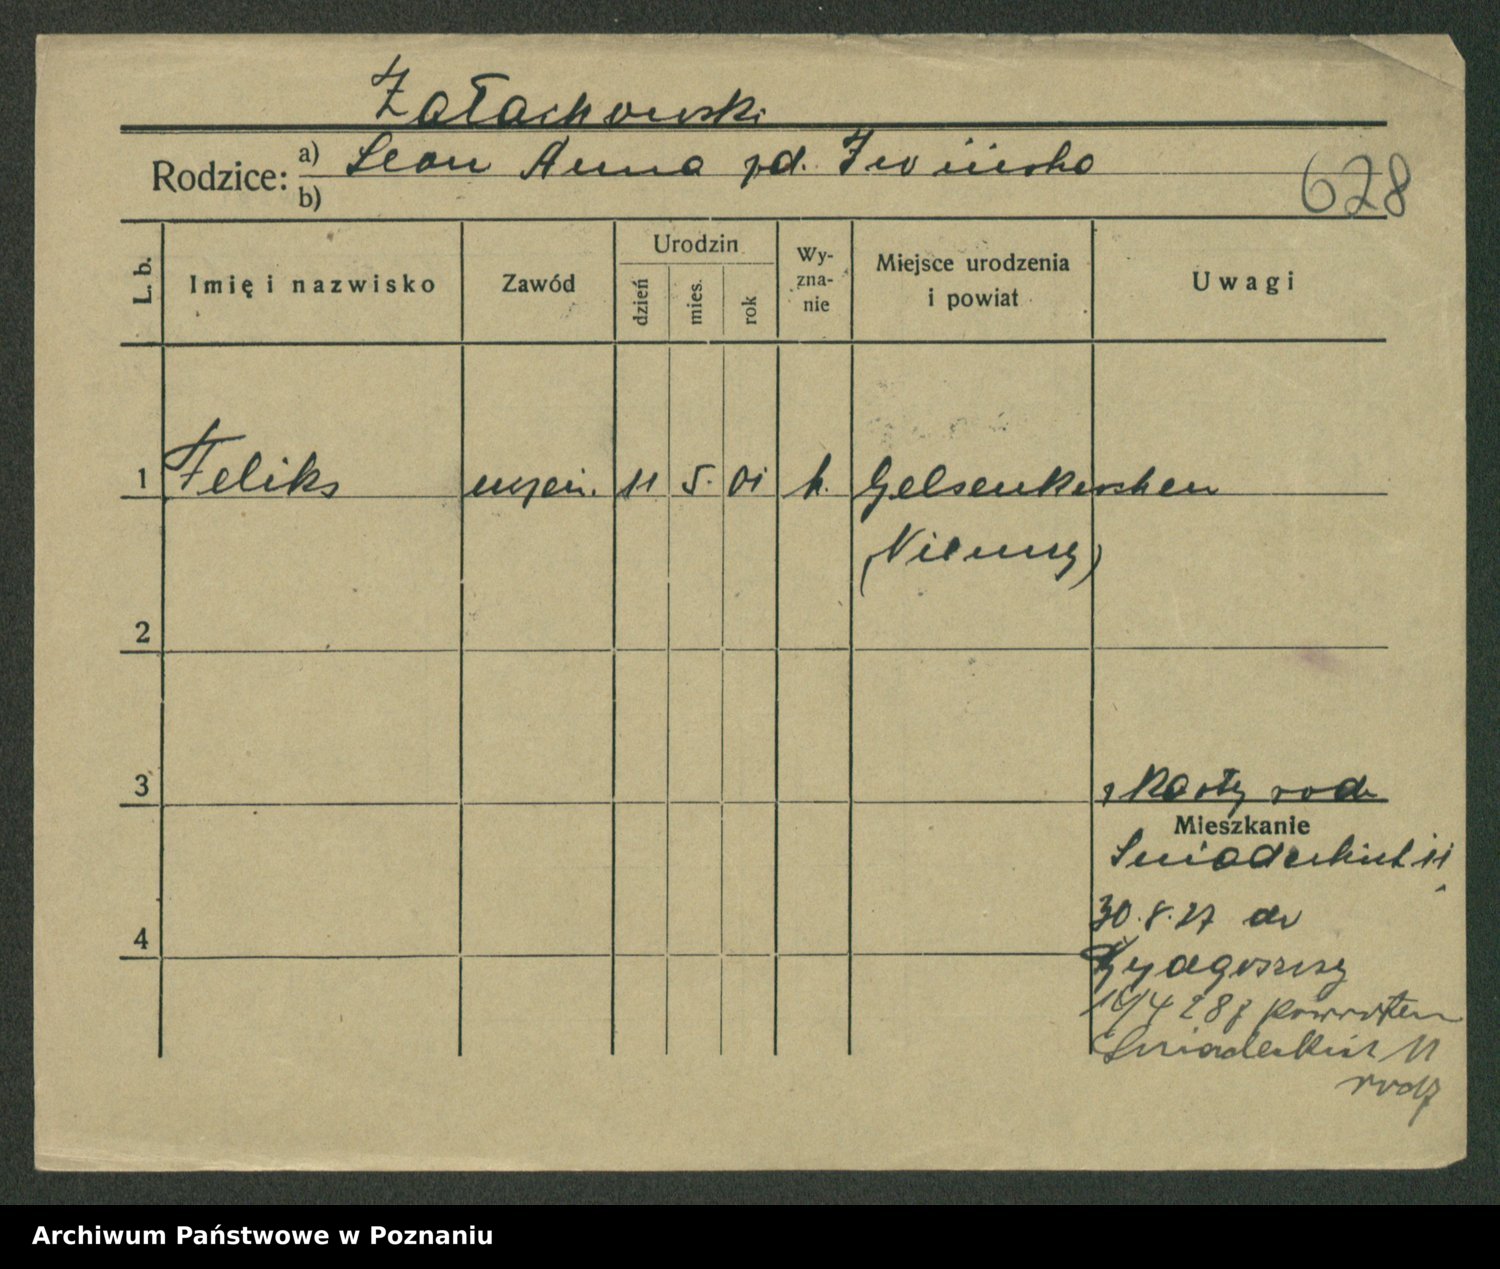 Załachowski
Rodzice: a) Leon Anna zd. Iwińska
b)
628
L. b.
Imię i nazwisko
Zawód
Urodzin
dzień
mies.
rok
Wy-
zna-
nie
Miejsce urodzenia
i powiat
Uwagi
1 Feliks uczeń. 11 5. 01 k. Gelsenkirchen
(Niemcy)
2
3
z Karty rodz
Mieszkanie
Śniadeckich 11
4
30.8.27 do
Bydgoszczy
28 z powrotem
Śniadeckich 11
rodz
Archiwum Państwowe w Poznaniu